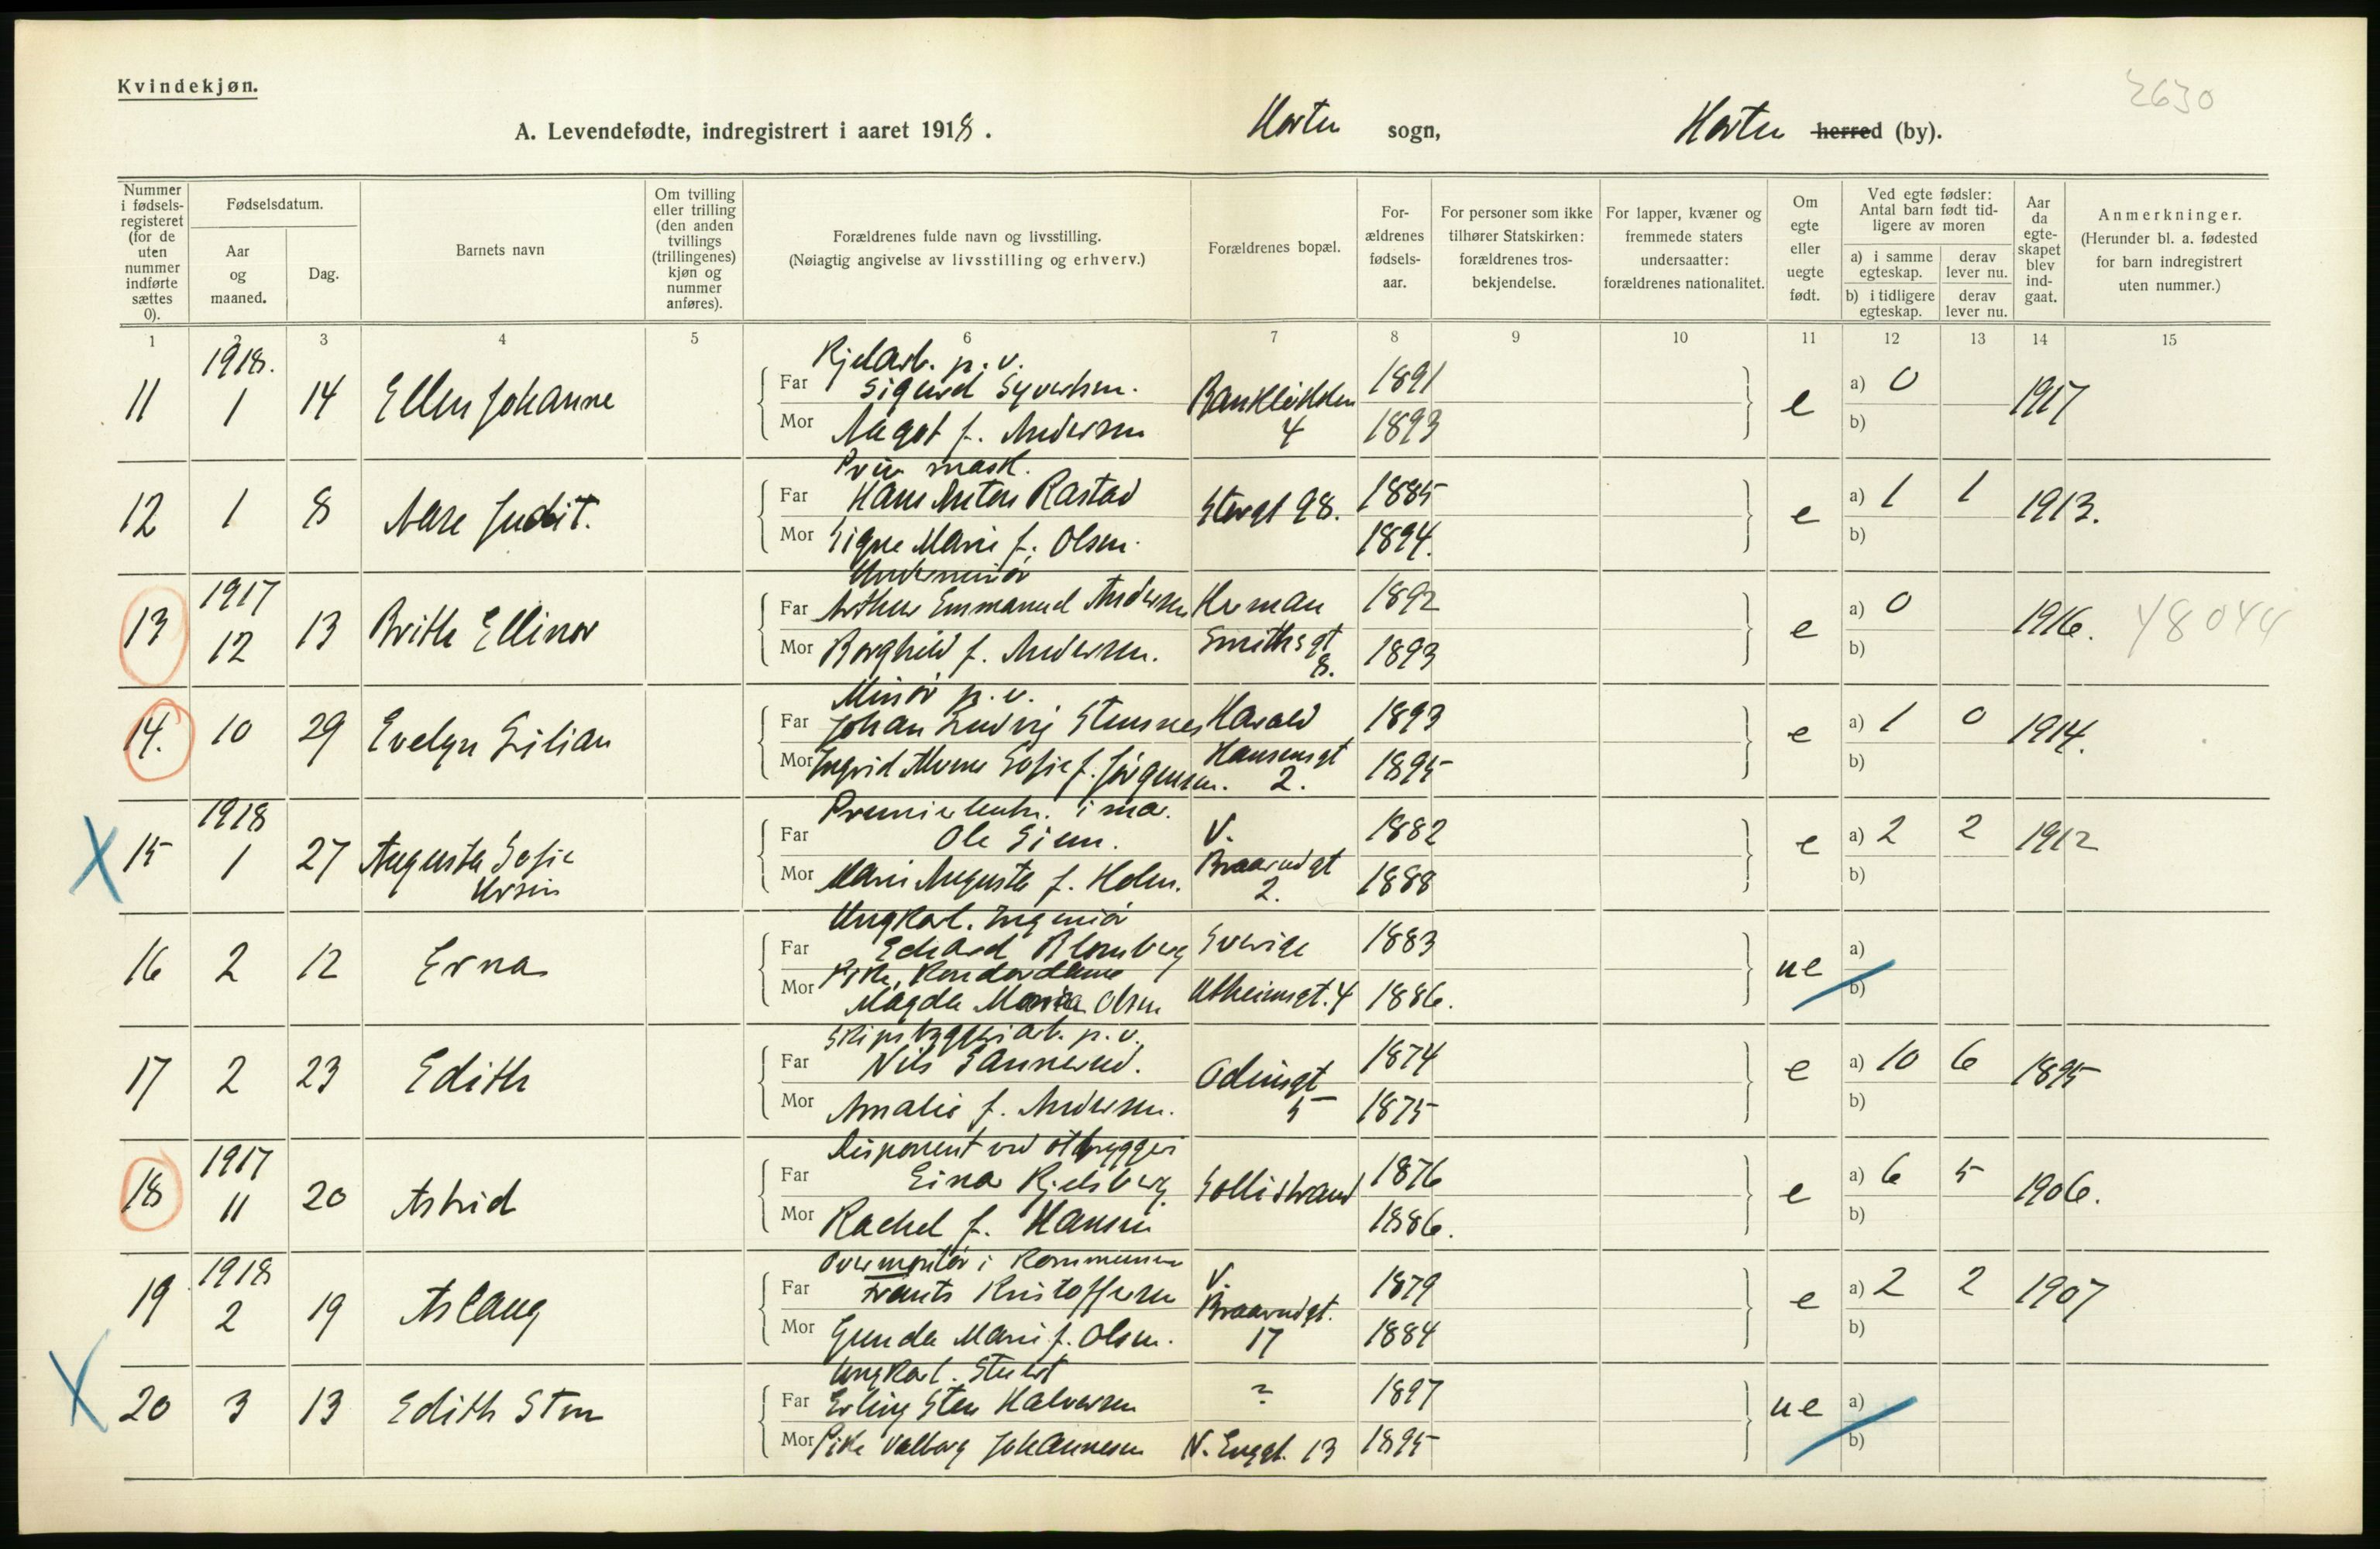 Kvindekjøn.
2630
A. Levendefødte, indregistrert i aaret 1918. Horten sogn, Horten herred (by).
Nummer i fødselsregisteret (for de uten nummer indførte sættes 0).
Fødselsdatum.
Aar og maaned.
Dag.
Barnets navn
Om tvilling eller trilling (den anden tvillings (trillingenes) kjøn og nummer anføres).
Forældrenes fulde navn og livsstilling.
(Nøiagtig angivelse av livsstilling og erhverv.)
Forældrenes bopæl.
Forældrenes fødselsaar.
For personer som ikke tilhører Statskirken: forældrenes trosbekjendelse.
For lapper, kvæner og fremmede staters undersaatter: forældrenes nationalitet.
Om egte eller uegte født.
Ved egte fødsler: Antal barn født tidligere av moren
a) i samme egteskap. derav lever nu.
b) i tidligere egteskap. derav lever nu.
Aar da egteskapet blev indgaat.
Anmerkninger.
(Herunder bl. a. fødested for barn indregistrert uten nummer.)
1 2 3 4 5 6 7 8 9 10 11 12 13 14 15
1918. Kjelarb. p. v.
11 1 14 Ellen Johanne Far Sigurd Syvertsen. 1891 e a) 0 1917
Mor Aagot f. Andersen 4 1893 b)
Priv. mask.
12 1 8 Aase Judit. Far Hans Anton Rastad Storgt 98. 1885 e a) 1 1 1913.
Mor Signe Marie f. Olsen. 1894. b)
1917 Underminør
13 12 13 Brith Ellinor Far Arthur Emmanuel Andersen Herman 1892 e a) 0 1916. 48044
Mor Borghild f. Andersen. Smithsgt 8. 1893 b)
Minør p. v.
14. 10 29 Evelyn Lilian Far Johan Ludvig Stensnes Harald 1893 e a) 1 0 1914.
Mor Ingrid Sofie f. Jörgensen. Hansensgt 2. 1895 b)
1918 Premierløitn. i mar.
15 1 27 Augusta Sofie Ursin Far Ole Siem. V. 1882 e a) 2 2 1912
Mor Marie Augusta f. Holm. Braarudgt 2. 1888 b)
Ungkarl. Ingeniør
16 2 12 Erna Far Edvard Blomberg Sverige 1883 ue a)
Pike, Kondordame
Mor Magda Maria Olsen Utheimsgt. 4 1886. b)
Skipsbyggeriarb. p. v.
17 2 23 Edith Far Nils Sannerud. Odinsgt 1874 e a) 10 6 1895
Mor Amalie f. Andersen. 5 1875 b)
1917 Disponent ved ølbryggeri
18 11 20 Astrid Far Einar Kjelsberg. Sollistrand 1876 e a) 6 5 1906.
Mor Rachel f. Hansen 1886. b)
1918 Overmontør i Kommunen
19 2 19 Aslaug Far Frants Kristoffersen V. 1879 e a) 2 2 1907
Mor Gunda Marie f. Olsen. Braarudgt. 17 1884 b)
Ungkarl. Stuert
20 3 13 Edith Sten Far Erling Sten Halvorsen ? 1897 ue a)
Mor Pike Valborg Johannesen N. Enggt. 13 1895 b)